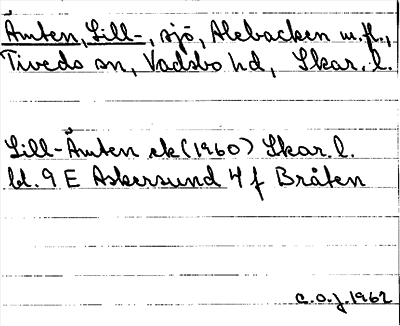 Åmten, Lill-, sjö, Alebacken m.fl.,
Tiveds sn, Vadsbo hd, Skar. l.
Lill-Åmten ek (1960) Skar. l.
bl. 9 E Askersund 4 f Bråten
C.O.J. 1962